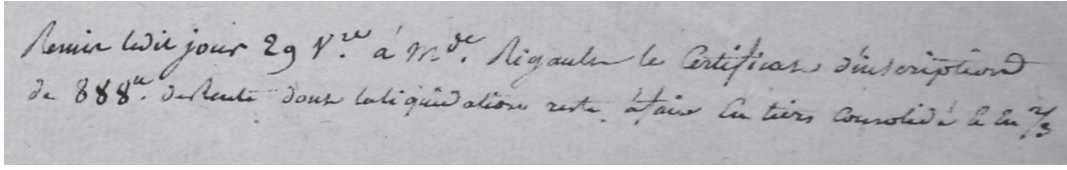 Remis ledit jour 29 V.re à Mde. Rigault le Certificat d'inscription
de 888tt. de Rente dont la liquidation reste à faire En tiers Consolidé & En 2/3